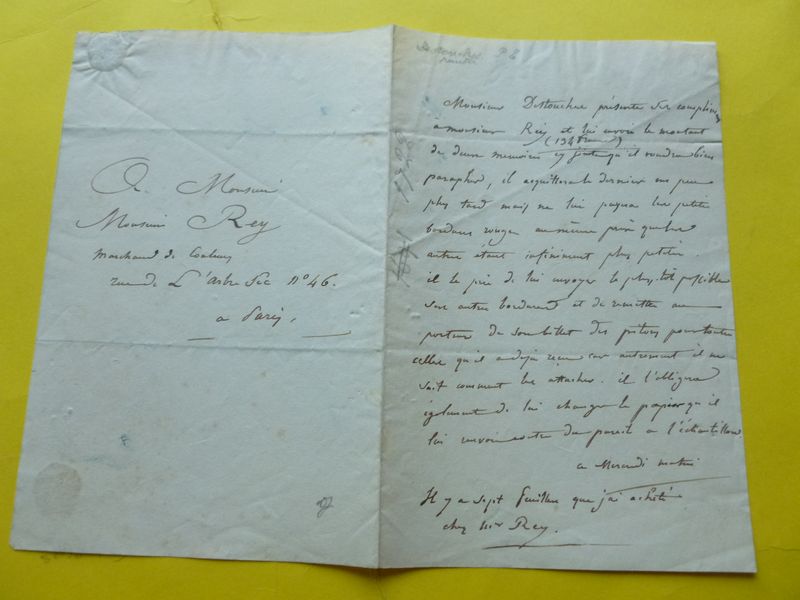 A Monsieur
Monsieur Rey
marchand de Couleurs
rue de L'Arbre Sec N° 46.
a Paris,
P E
Monsieur Destouches présente ses complimens
a monsieur Rey et lui envoie le montant
(134 francs)
de deux memoires cy joints qu'il voudra bien
parapher, il acquittera le dernier un peu
plus tard mais ne lui payera les petits
bordures rouges au même prix que les
autres étant infiniment plus petites.
il le prie de lui envoyer le plus tôt possible
ses autres bordures et de remettre au
porteur de son billet des pitons pour toutes
celles qu'il a déja reçu car autrement il ne
sait comment les attacher. il l'obligera
également de lui changer le papier qu'il
lui renvoie contre du pareil a l'échantillon
a Mercredi matin
Il y a sept feuilles que j'ai acheté
chez Mr Rey.